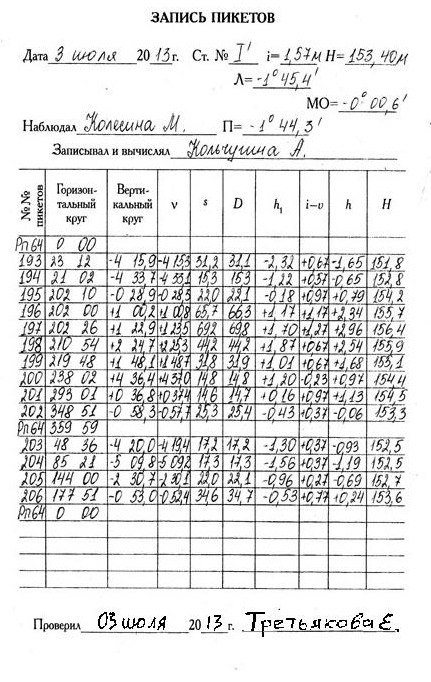 ЗАПИСЬ ПИКЕТОВ
Дата 3 июля 2013г. Ст. № I' i= 1,57м H= 153,40м
Л= -1° 45,4'
МО= -0° 00,6'
Наблюдал Колесина М. П= -1° 44,3'
Записывал и вычислял Кольчугина А.
№№ пикетов Горизонтальный круг Вертикальный круг ν s D h₁ i–υ h H
Рп64 0 00
193 23 12 -4 15,9 -4 15,3 31,2 31,1 -2,32 +0,67 -1,65 151,8
194 21 02 -4 33,7 -4 33,1 15,3 15,3 -1,22 +0,57 -0,65 152,8
195 202 10 -0 28,9 -0 28,3 22,0 22,1 -0,18 +0,97 +0,79 154,2
196 202 00 +1 00,2 +1 00,8 65,7 66,3 +1,17 +1,17 +2,34 155,7
197 202 26 +1 22,9 +1 23,5 69,2 69,8 +1,70 +1,27 +2,96 156,4
198 210 54 +2 24,7 +2 25,3 44,2 44,2 +1,87 +0,67 +2,54 155,9
199 219 48 +1 48,1 +1 48,7 31,8 31,9 +1,01 +0,67 +1,68 153,1
200 238 02 +4 36,4 +4 37,0 14,8 14,8 +1,20 -0,23 +0,97 154,4
201 293 01 +0 36,8 +0 37,4 14,6 14,7 +0,16 +0,97 +1,13 154,5
202 348 51 -0 58,3 -0 57,7 25,3 25,4 -0,43 +0,37 -0,06 153,3
Рп64 359 59
203 48 36 -4 20,0 -4 19,4 17,2 17,2 -1,30 +0,37 -0,93 152,5
204 85 21 -5 09,8 -5 09,2 17,3 17,3 -1,56 +0,37 -1,19 152,5
205 144 00 -2 30,7 -2 30,1 22,0 22,1 -0,96 +0,27 -0,69 152,7
206 177 51 -0 53,0 -0 52,4 34,6 34,7 -0,53 +0,77 +0,24 153,6
Рп64 0 00
Проверил 03 июля 2013 г. Третьякова Е.